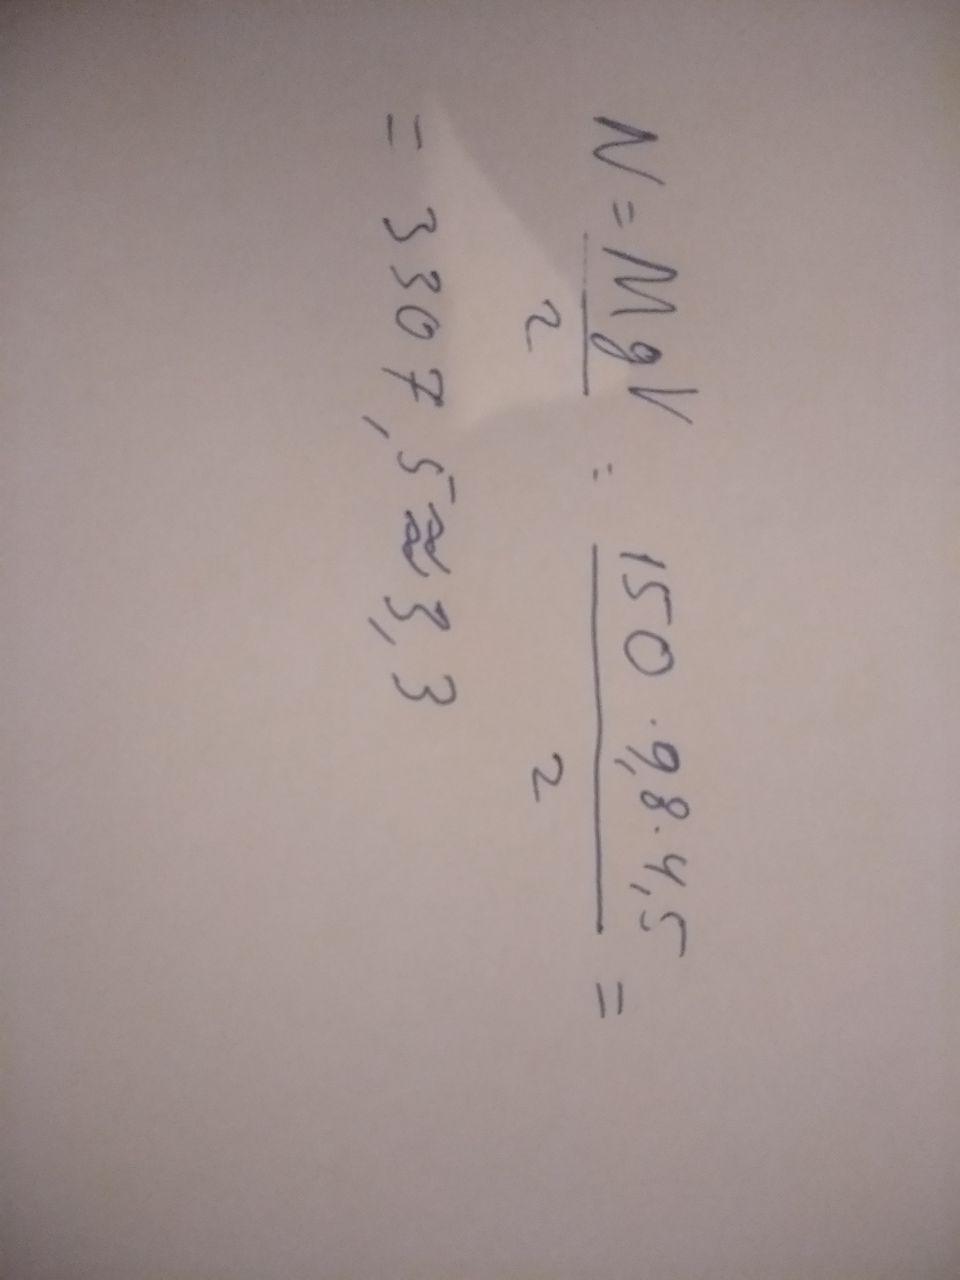 N = MgV/2 = 150 · 9,8 · 4,5/2 =
= 3307,5 ≈ 3,3